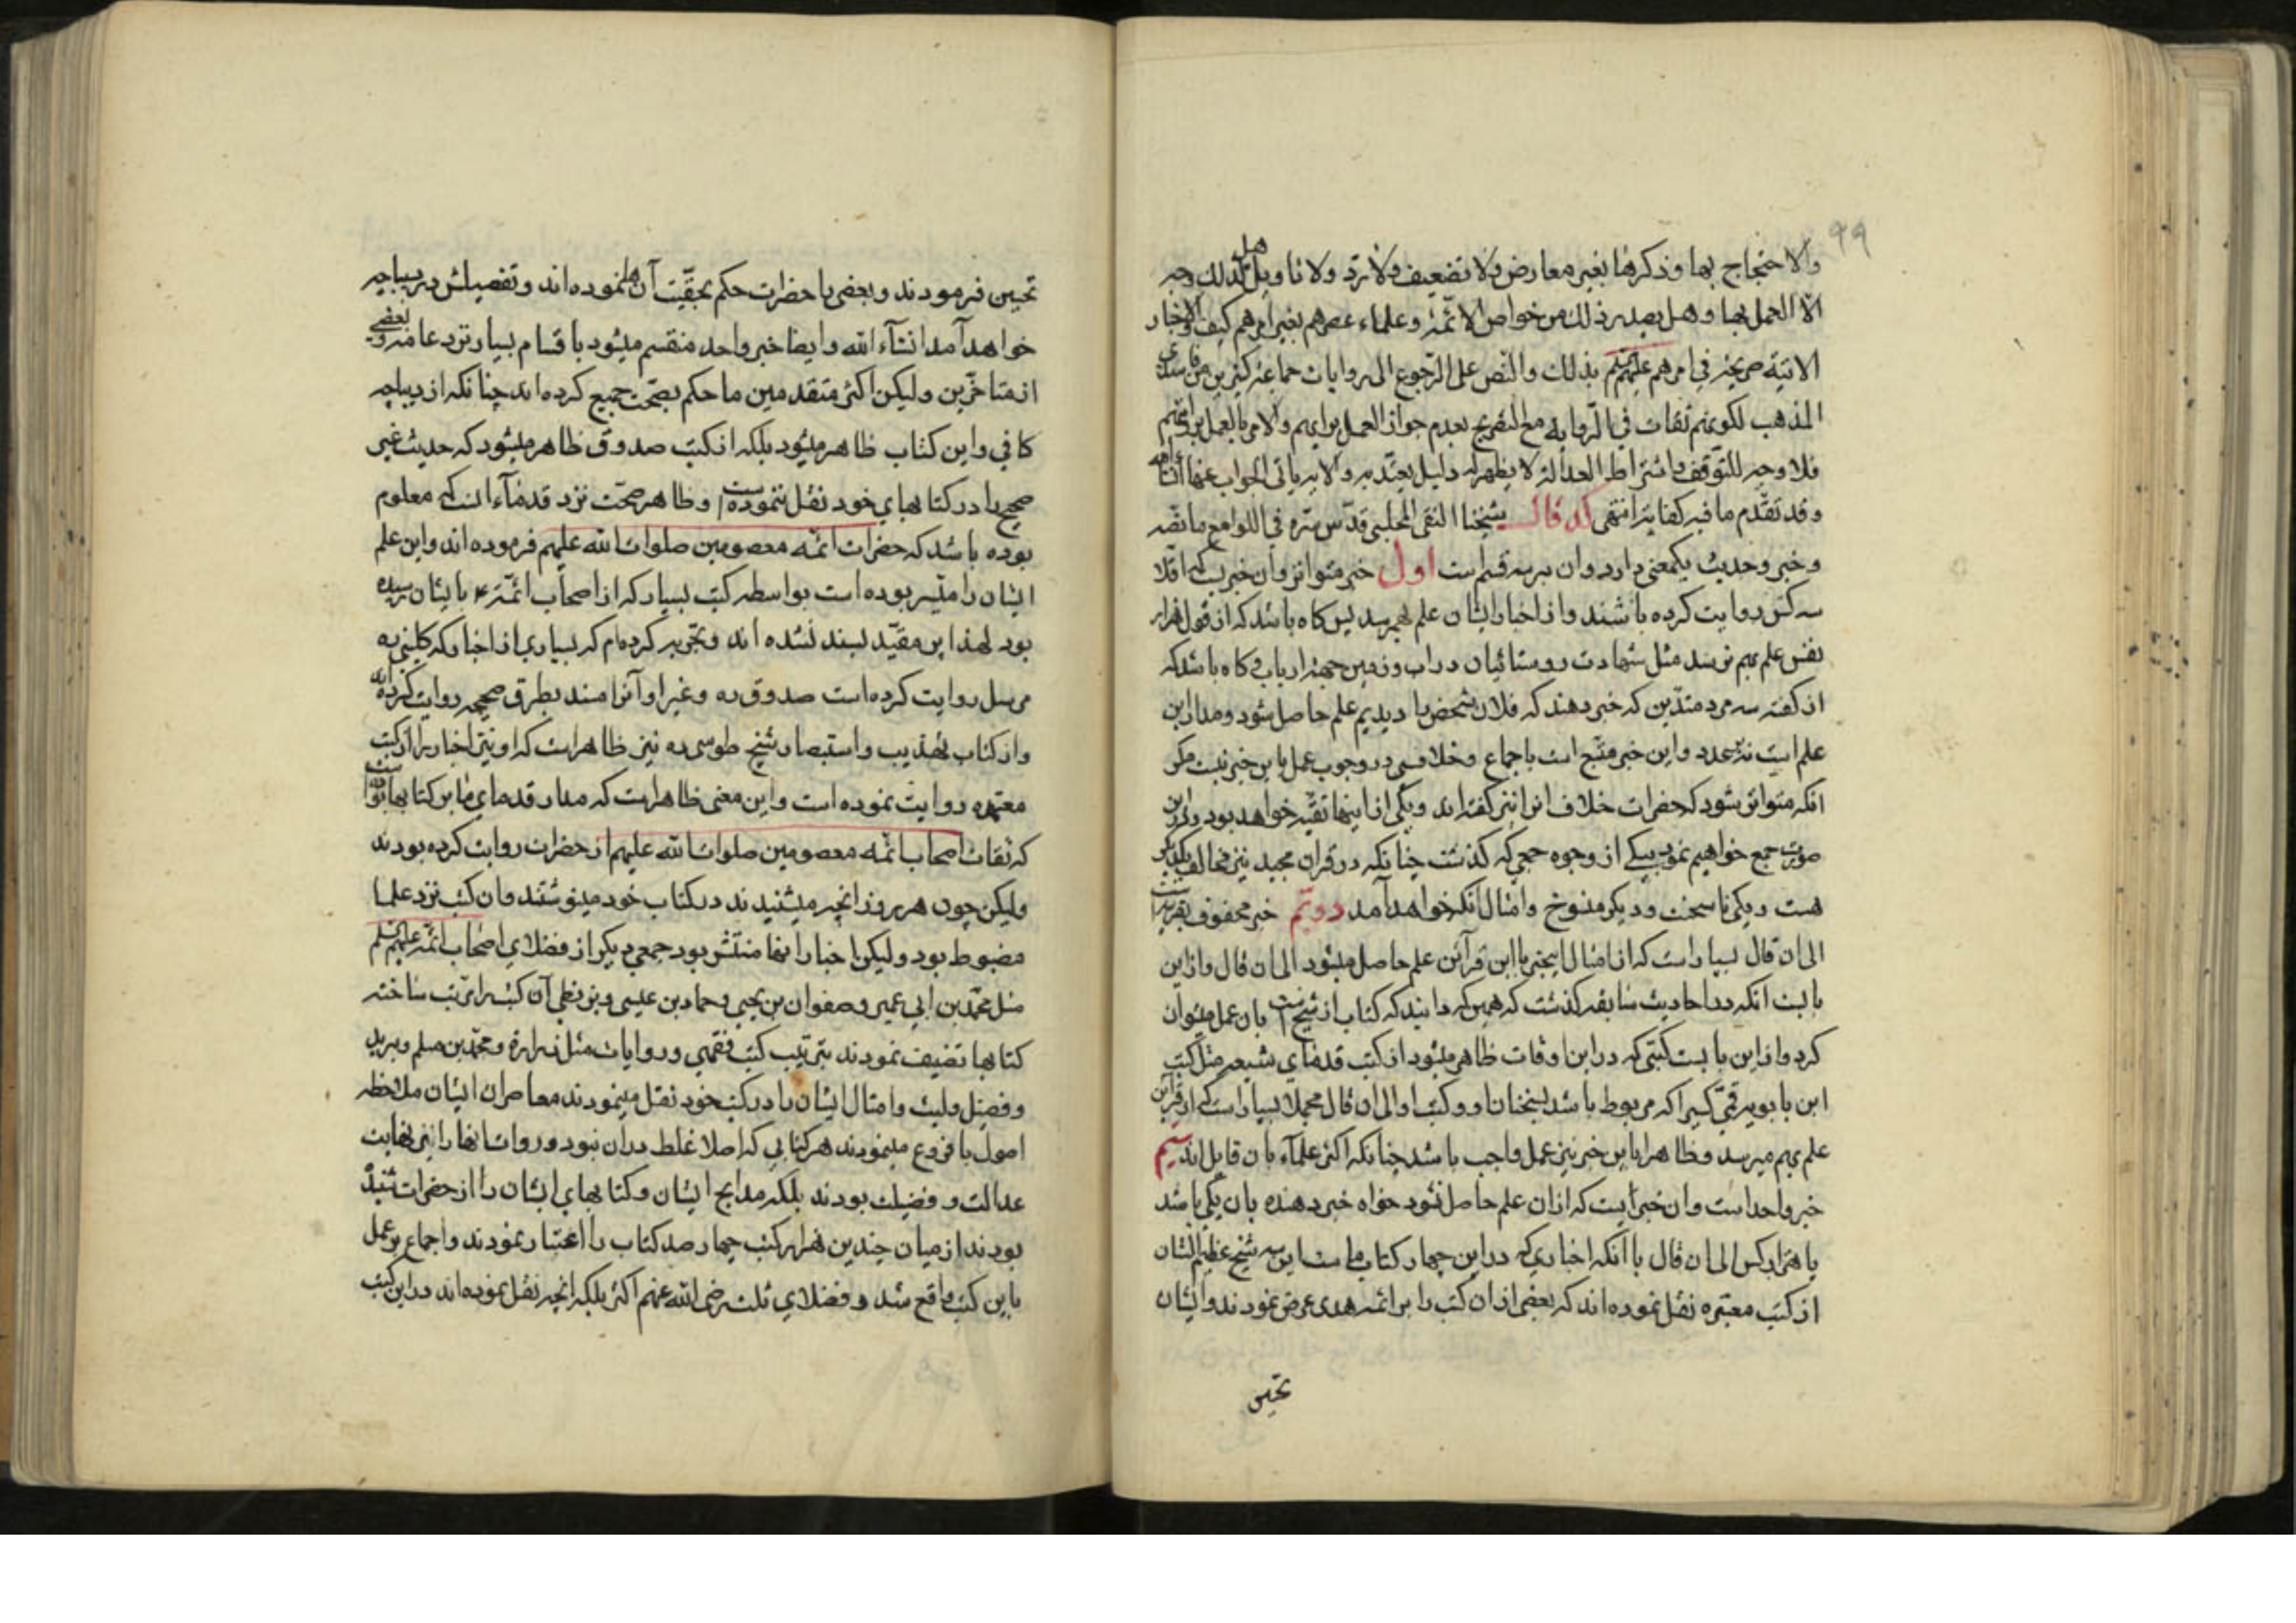 ۹۹
والاحتجاج بها وذكرها بغير معارض ولا تضعيف ولا ترد ولا تاويل هل لذلك وجه
الا العمل بها وهل يصدر ذلك من خواص الائمة وعلماء عصرهم بغير امرهم كيف والاخبار
الاتية صريحة في امرهم عليهم السلم بذلك والنص على الرجوع الى روايات جماعة كثيرين من فاسدي
المذهب لكونهم ثقات في الرواية مع التصريح بعدم جواز العمل برايهم والامر بالعمل بروايتهم
فلا وجه للتوقف واشتراط العدالة لا يظهر له دليل يعتد به والاية ياتي الجواب عنها انشاء الله
وقد تقدم ما فيه كفاية انتهى كد قال شيخنا التقي المجلسي قدس سره في اللوامع ما نصه
وخبر وحديث يكمعنى دارد وان بر سه قسم است اول خبر متواتر وآن خبريست كه اقلا
سه كس روايت كرده باشند واز اخبار ايشان علم بهم رسد پس كاه باشد كه از قول هزار
نفس علم بهم نرسد مثل شهادت روستائيان در اب وزمين جهة ارباب وكاه باشد كه
از كفته سه مرد متدين كه خبر دهند كه فلان شخص را ديديم علم حاصل شود ومدار اين
علم است نه بر عدد واين خبر متبع است باجماع وخلافي در وجوب عمل باين خبر نيست مكر
انكه متواتر شود كه حضرات خلاف انرا نيز كفته اند ويكى از اينها تقيه خواهد بود ودر اين
صورت جمع خواهيم نمود بيكى از وجوه جمعي كه كذشت چنانكه در قران مجيد نيز مخالف يكديكر
هست ويكى ناسخست وديكر منسوخ وامثال انكه خواهد آمد دويم خبر محفوف بقرينه است
الى ان قال بسيار است كه از امثال اين خبر با اين قرآئن علم حاصل ميشود الى ان قال واز اين
بابست انكه در احاديث سابقه كذشت كه همين كه دانيد كه كتاب از شيخ است بان عمل ميتوان
كرد واز اين بابست كتبى كه در اين اوقات ظاهر ميشود از كتب قدماي شيعه مثل كتب
ابن بابويه قمي كسيرا كه مربوط باشد بسخنان او وكتب او الى ان قال مجملا بسيار است كه از قرآين
علم بهم ميرسد وظاهرا باين خبر نيز عمل واجب باشد چنانكه اكثر علماء بان قايل اند سيم
خبر واحد است وان خبر ايست كه از ان علم حاصل نشود خواه خبر دهنده بان يكى باشد
يا هزار كس الى ان قال با آنكه اخباري كه در اين چهار كتاب ماست اين سه شيخ عظيم الشان
از كتب معتبره نقل نموده اند كه بعضى از ان كتب را بر ائمه هدى عرض نمودند وايشان
تحسين
تحسين فرمودند وبعضى را حضرات حكم بحقيّت آنها نموده اند وتفصيلش در ديباجه
خواهد آمد انشآء الله وايضا خبر واحد منقسم ميشود باقسام بسيار نزد عامه وبعضي
از متاخرين وليكن اكثر متقدمين ما حكم بصحت جميع كرده اند چنانكه از ديباجه
كافي واين كتاب ظاهر ميشود بلكه از كتب صدوق ظاهر ميشود كه حديث غير
صحيح را در كتابهاي خود نقل ننموده است وظاهر صحّت نزد قدمآء انست كه معلوم
بوده باشد كه حضرات ائمه معصومين صلوات الله عليهم فرموده اند واين علم
ايشان را ميسر بوده است بواسطه كتب بسيار كه از اصحاب ائمّه ع بايشان رسيده
بود لهذا اين مقيّد بسند نشده اند وتجربه كرده ام كه بسياري از اخبار كه كليني ره
مرسل روايت كرده است صدوق ره وغير او آنرا مسند بطرق صحيحه روايت كرده اند
واز كتاب تهذيب واستبصار شيخ طوسى ره نيز ظاهر است كه او نيز اخبار را از كتب
معتمده روايت نموده است واين معنى ظاهر است كه مدار قدماي ما بر كتابها بوده است
كه ثقات اصحاب ائمه معصومين صلوات الله عليهم از حضرات روايت كرده بودند
وليكن چون هر روز انچه ميشنيدند در كتاب خود مينوشتند وان كتب نزد علما
مضبوط بود وليكن اخبار انها منتشر بود جمعي ديكر از فضلاي اصحاب ائمّه عليهم السلم
مثل محمد بن ابي عمير وصفوان بن يحيي وحماد بن عيسى وبزنطي آن كتب را مرتب ساخته
كتابها تصنيف نمودند بترتيب كتب فقهي وروايات مثل زراره ومحمد بن مسلم وبريد
وفضيل وليث وامثال ايشان را در كتب خود نقل مينمودند معاصران ايشان ملاحظه
اصول با فروع مينمودند هر كتابي كه اصلا غلط در ان نبود وروات انها را نيز نهايت
عدالت وفضيلت بودند بلكه مدايح ايشان وكتابهاي ايشان را از حضرات شنيده
بودند از ميان چندين هزار كتب چهار صد كتاب را اعتبار نمودند واجماع بر عمل
باين كتب واقع شد وفضلاي ثلثه رضي الله عنهم اكثر بلكه انچه نقل نموده اند در اين كتب